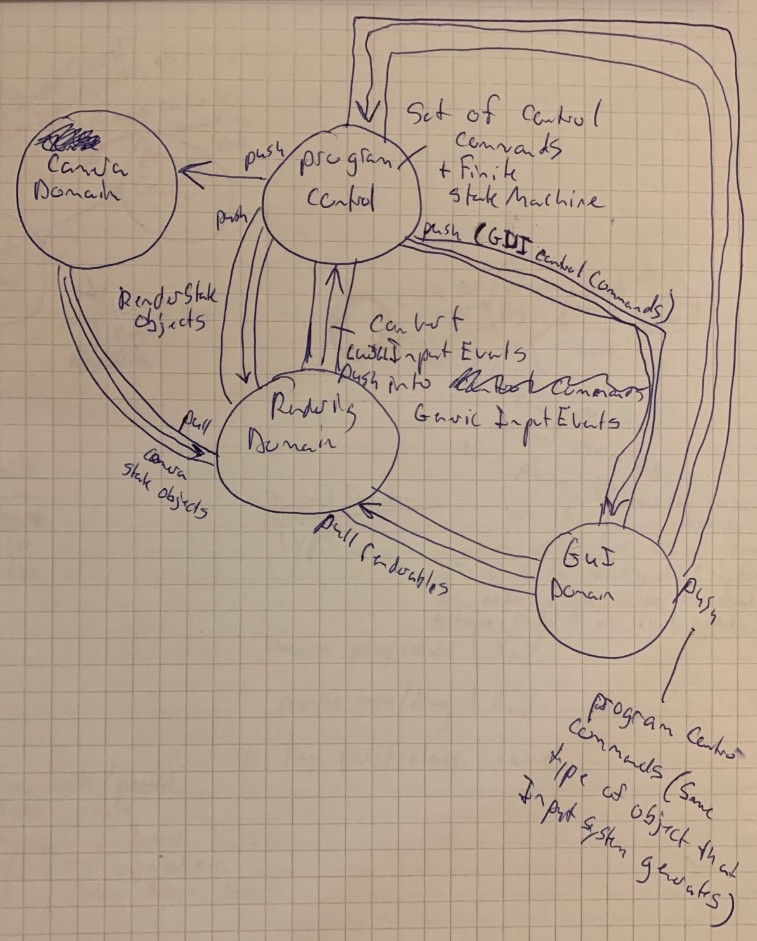 Set of Control
Commands
+ Finite
State Machine
push
program
Control
Camera
Domain
push
push (GUI control Commands)
RenderState
Objects
Convert
Input Events
push into
Generic InputEvents
Rendering
Domain
pull
camera
state objects
pull renderables
GuI
Domain
push
program Contro
commands (Same
type of object that
Input system generates)